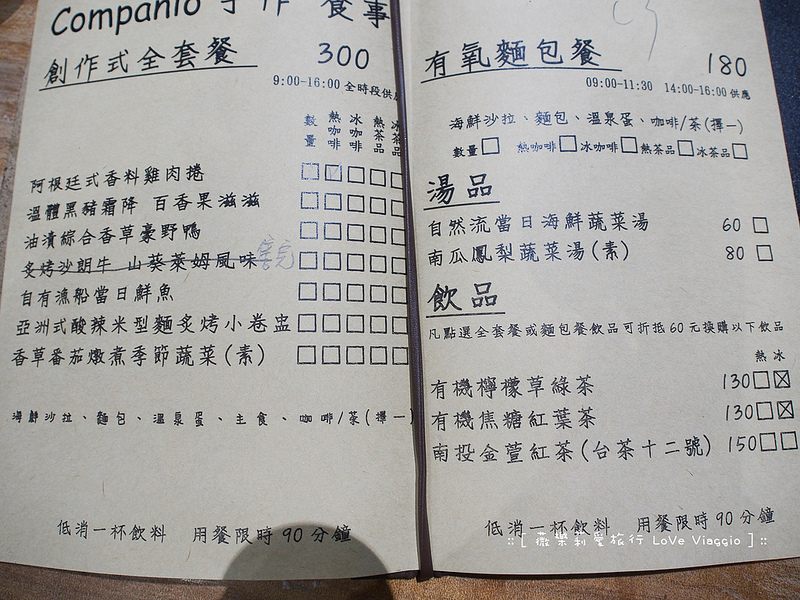 Companio 手作 食事
創作式全套餐 300
9:00-16:00 全時段供應
數量 熱咖啡 冰咖啡 熱茶品 冰茶品
阿根廷式香料雞肉捲
溫體黑豬霜降 百香果滋滋
油漬綜合香草豪野鴨
炙烤沙朗牛 山葵萊姆風味 售完
自有漁船當日鮮魚
亞洲式酸辣米型麵炙烤小卷盅
香草番茄燉煮季節蔬菜(素)
海鮮沙拉、麵包、溫泉蛋、主食、咖啡/茶(擇一)
低消一杯飲料 用餐限時90分鐘
有氧麵包餐 180
09:00-11:30 14:00-16:00 供應
海鮮沙拉、麵包、溫泉蛋、咖啡/茶(擇一)
數量□ 熱咖啡□冰咖啡□熱茶品□冰茶品□
湯品
自然流當日海鮮蔬菜湯 60 □
南瓜鳳梨蔬菜湯(素) 80 □
飲品
凡點選全套餐或麵包餐飲品可折抵60元換購以下飲品
熱 冰
有機檸檬草綠茶 130□☒
有機焦糖紅葉茶 130□☒
南投金萱紅茶(台茶十二號) 150□□
低消一杯飲料 用餐限時90分鐘
::[ 薇樂莉愛旅行 LoVe Viaggio ]::